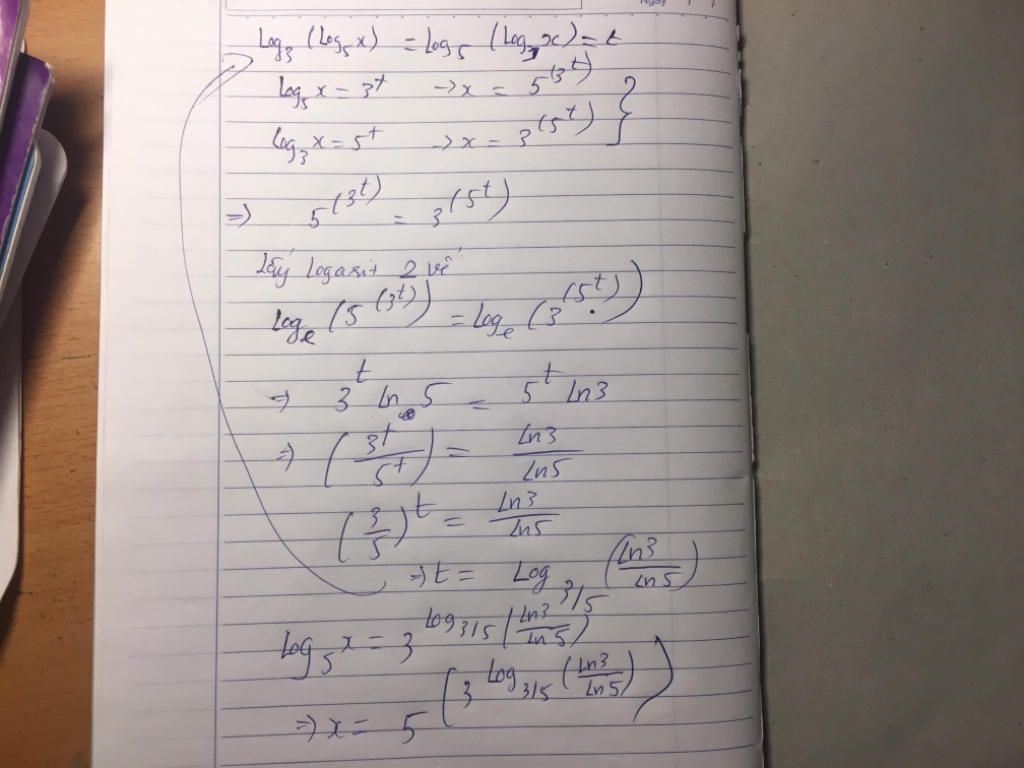 Ngày
Log₃ (Log₅ x) = Log₅ (Log₃ x) = t
log₅ x = 3^t → x = 5^(3^t)
log₃ x = 5^t → x = 3^(5^t) }
=> 5^(3^t) = 3^(5^t)
Lấy logarit 2 vế
Logₑ (5^(3^t)) = Logₑ (3^(5^t))
=> 3^t ln 5 = 5^t ln3
=> (3^t/5^t) = ln3/ln5
(3/5)^t = ln3/ln5
=> t = Log_3/5 (ln3/ln5)
log₅ x = 3^log_3/5 (ln3/ln5)
=> x = 5^(3^log_3/5 (ln3/ln5))